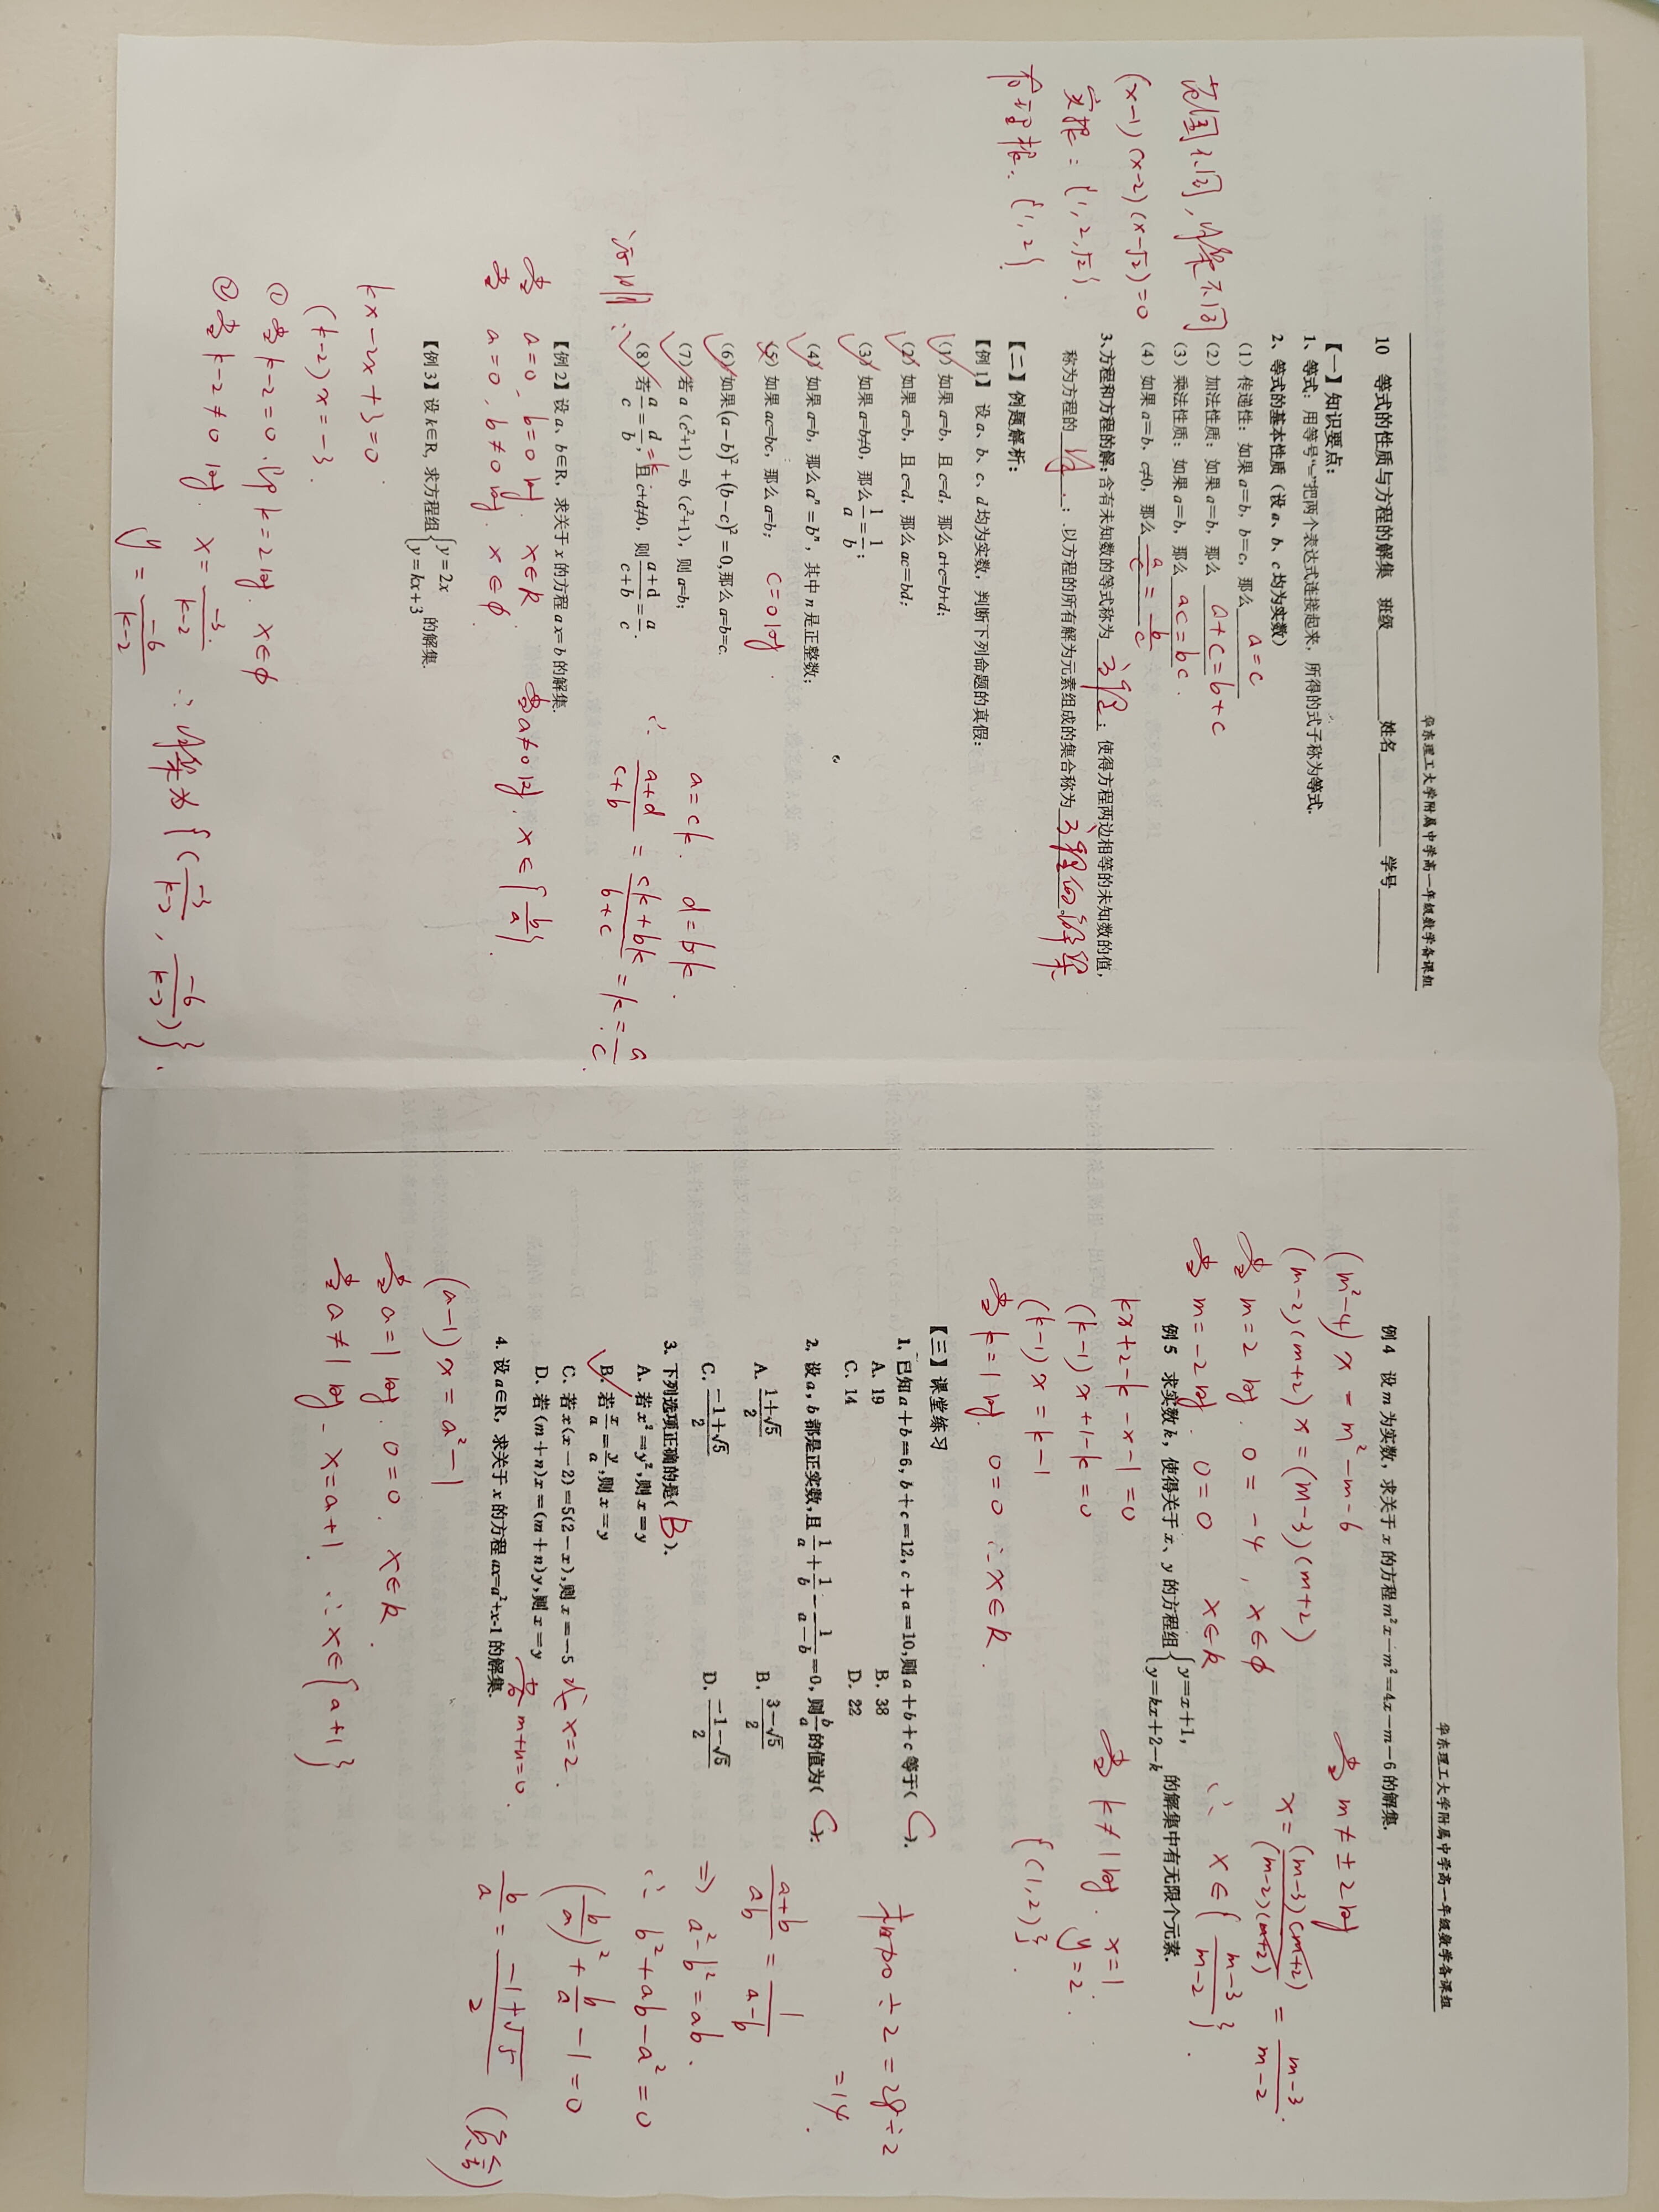 华东理工大学附属中学高一年级数学备课组
10 等式的性质与方程的解集 班级________ 姓名________ 学号________
【一】知识要点:
1、等式: 用等号“=”把两个表达式连接起来, 所得的式子称为等式.
2、等式的基本性质（设 a、b、c 均为实数）
（1）传递性: 如果 a=b, b=c, 那么 a=c
（2）加法性质: 如果 a=b, 那么 a+c=b+c
（3）乘法性质: 如果 a=b, 那么 ac=bc.
（4）如果 a=b、c≠0, 那么 a/c = b/c
范围不同, 解集不同
(x-1)(x-2)(x-√2)=0
实根: {1,2,√2}.
有理根: {1,2}
3、方程和方程的解: 含有未知数的等式称为 方程; 使得方程两边相等的未知数的值,
称为方程的 解; 以方程的所有解为元素组成的集合称为 方程的解集.
【二】例题解析:
【例 1】设 a、b、c、d 均为实数, 判断下列命题的真假:
√(1) 如果 a=b, 且 c=d, 那么 a+c=b+d;
√(2) 如果 a=b, 且 c=d, 那么 ac=bd;
√(3) 如果 a=b≠0, 那么 1/a=1/b;
√(4) 如果 a=b, 那么 aⁿ=bⁿ, 其中 n 是正整数;
×(5) 如果 ac=bc, 那么 a=b; c=0时.
√(6) 如果 (a-b)²+(b-c)²=0, 那么 a=b=c.
√(7) 若 a (c²+1) =b (c²+1), 则 a=b;
√(8) 若 a/c=d/b=k, 且 c+d≠0, 则 (a+d)/(c+b)=a/c.
证明:
a=ck. d=bk.
∴ (a+d)/(c+b) = (ck+bk)/(b+c) = k = a/c.
【例 2】设 a、b∈R, 求关于 x 的方程 ax=b 的解集.
当 a=0, b=0时. x∈R
当 a=0, b≠0时. x∈φ.
当a≠0时. x∈{b/a}.
【例 3】设 k∈R, 求方程组{y=2x y=kx+3 的解集.
kx-2x+3=0
(k-2)x=-3.
①当k-2=0.即k=2时. x∈φ
②当k-2≠0时. x=-3/(k-2)
y=-6/(k-2)
∴解集为{(-3/(k-2), -6/(k-2))}.
华东理工大学附属中学高一年级数学备课组
例 4 设 m 为实数, 求关于 x 的方程 m²x-m²=4x-m-6 的解集.
(m²-4)x=m²-m-6
(m-2)(m+2)x=(m-3)(m+2)
当 m=2时. 0=-4, x∈φ
当 m=-2时. 0=0 x∈R
当 m≠±2时
x=(m-3)(m+2)/(m-2)(m+2)=(m-3)/(m-2).
∴ x∈{(m-3)/(m-2)}.
例 5 求实数 k, 使得关于 x、y 的方程组{y=x+1, y=kx+2-k 的解集中有无限个元素.
kx+2-k-x-1=0
(k-1)x+1-k=0
(k-1)x=k-1
当k=1时. 0=0 ∴x∈R.
当 k≠1时. x=1
y=2.
{(1,2)}.
【三】课堂练习
1. 已知 a+b=6, b+c=12, c+a=10, 则 a+b+c 等于( C ).
A. 19 B. 38
C. 14 D. 22
÷2=28÷2
=14.
2. 设 a, b 都是正实数, 且 1/a+1/b-1/(a-b)=0, 则 b/a 的值为( C ).
A. (1+√5)/2 B. (3-√5)/2
C. (-1+√5)/2 D. (-1-√5)/2
(a+b)/ab=1/(a-b)
⇒ a²-b²=ab.
∴ b²+ab-a²=0
(b/a)²+b/a-1=0
b/a=(-1+√5)/2 (负舍)
3. 下列选项正确的是( B ).
A. 若 x²=y², 则 x=y
√B. 若 x/a=y/a, 则 x=y
C. 若 x(x-2)=5(2-x), 则 x=-5 或 x=2.
D. 若 (m+n)x=(m+n)y, 则 x=y 若 m+n=0.
4. 设 a∈R, 求关于 x 的方程 ax=a²+x-1 的解集.
(a-1)x=a²-1
当a=1时. 0=0. x∈R.
当a≠1时. x=a+1. ∴x∈{a+1}